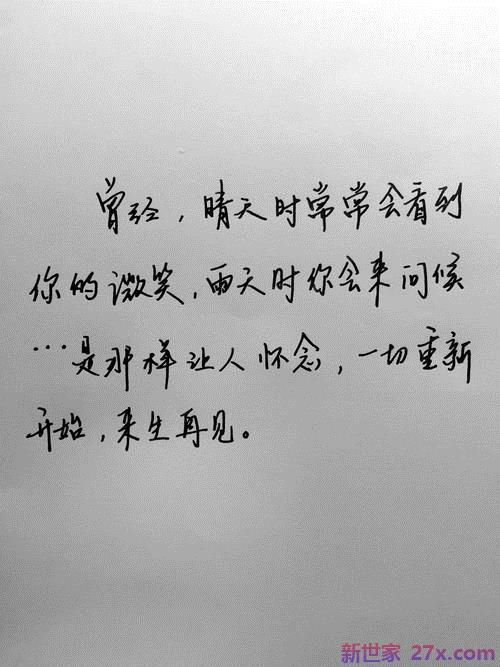 曾经，晴天时常常会看到
你的微笑，雨天时你会来问候
…是那样让人怀念，一切重新
开始，来生再见。
新世家 27x.com